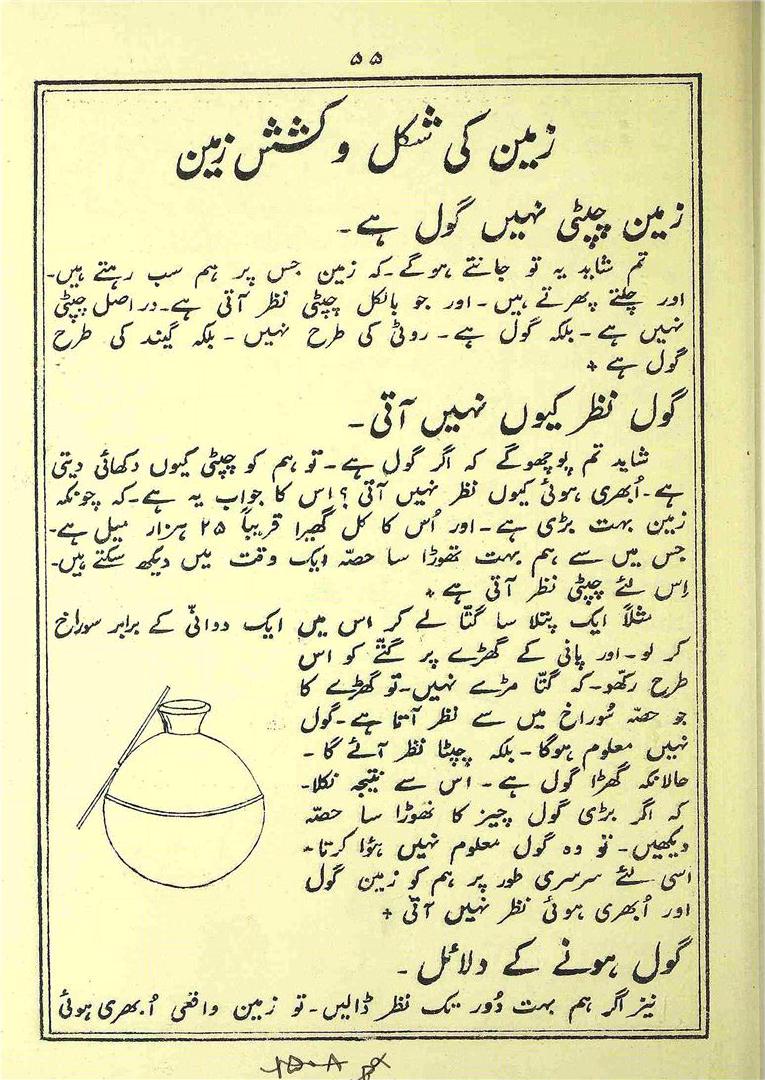 ۵۵
زمین کی شکل و کشش زمین
زمین چپٹی نہیں گول ہے۔
تم شاید یہ تو جانتے ہوگے۔کہ زمین جس پر ہم سب رہتے ہیں۔
اور چلتے پھرتے ہیں۔ اور جو بالکل چپٹی نظر آتی ہے۔دراصل چپٹی
نہیں ہے۔ بلکہ گول ہے۔ روٹی کی طرح نہیں۔ بلکہ گیند کی طرح
گول ہے +
گول نظر کیوں نہیں آتی۔
شاید تم پوچھوگے کہ اگر گول ہے۔ تو ہم کو چپٹی کیوں دکھائی دیتی
ہے۔اُبھری ہوئی کیوں نظر نہیں آتی؟ اس کا جواب یہ ہے۔کہ چونکہ
زمین بہت بڑی ہے۔ اور اُس کا کل گھیرا قریباً ۲۵ ہزار میل ہے۔
جس میں سے ہم بہت تھوڑا سا حصّہ ایک وقت میں دیکھ سکتے ہیں۔
اِس لئے چپٹی نظر آتی ہے +
مثلاً ایک پتلا سا گتّا لے کر اس میں ایک دوانّی کے برابر سوراخ
کر لو۔ اور پانی کے گھڑے پر گتّے کو اس
طرح رکھّو۔ کہ گتّا مڑے نہیں۔ تو گھڑے کا
جو حصّہ سُوراخ میں سے نظر آتا ہے۔گول
نہیں معلوم ہوگا۔ بلکہ چپٹا نظر آئے گا۔
حالانکہ گھڑا گول ہے۔ اس سے نتیجہ نکلا۔
کہ اگر بڑی گول چیز کا تھوڑا سا حصّہ
دیکھیں۔ تو وہ گول معلوم نہیں ہؤا کرتا۔
اسی لئے سرسری طور پر ہم کو زمین گول
اور اُبھری ہوئی نظر نہیں آتی +
گول ہونے کے دلائل۔
نیز اگر ہم بہت دُور تک نظر ڈالیں۔ تو زمین واقعی اُبھری ہوئی